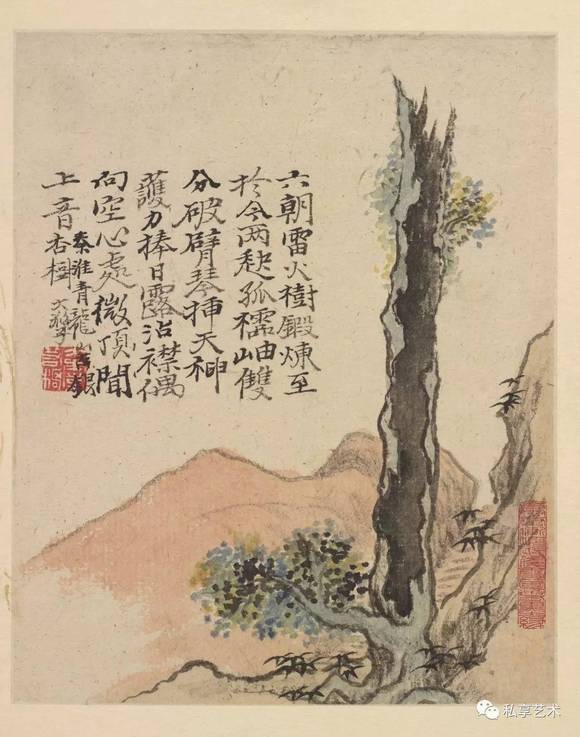 六朝雷火樹鍛煉至
於今兩孤岫雙
分破臂琴挿天神
護力捧日露沾襟偶
向空心處微頂聞
上音
秦淮青龍山古銀
杏樹 大滌子
私享艺术